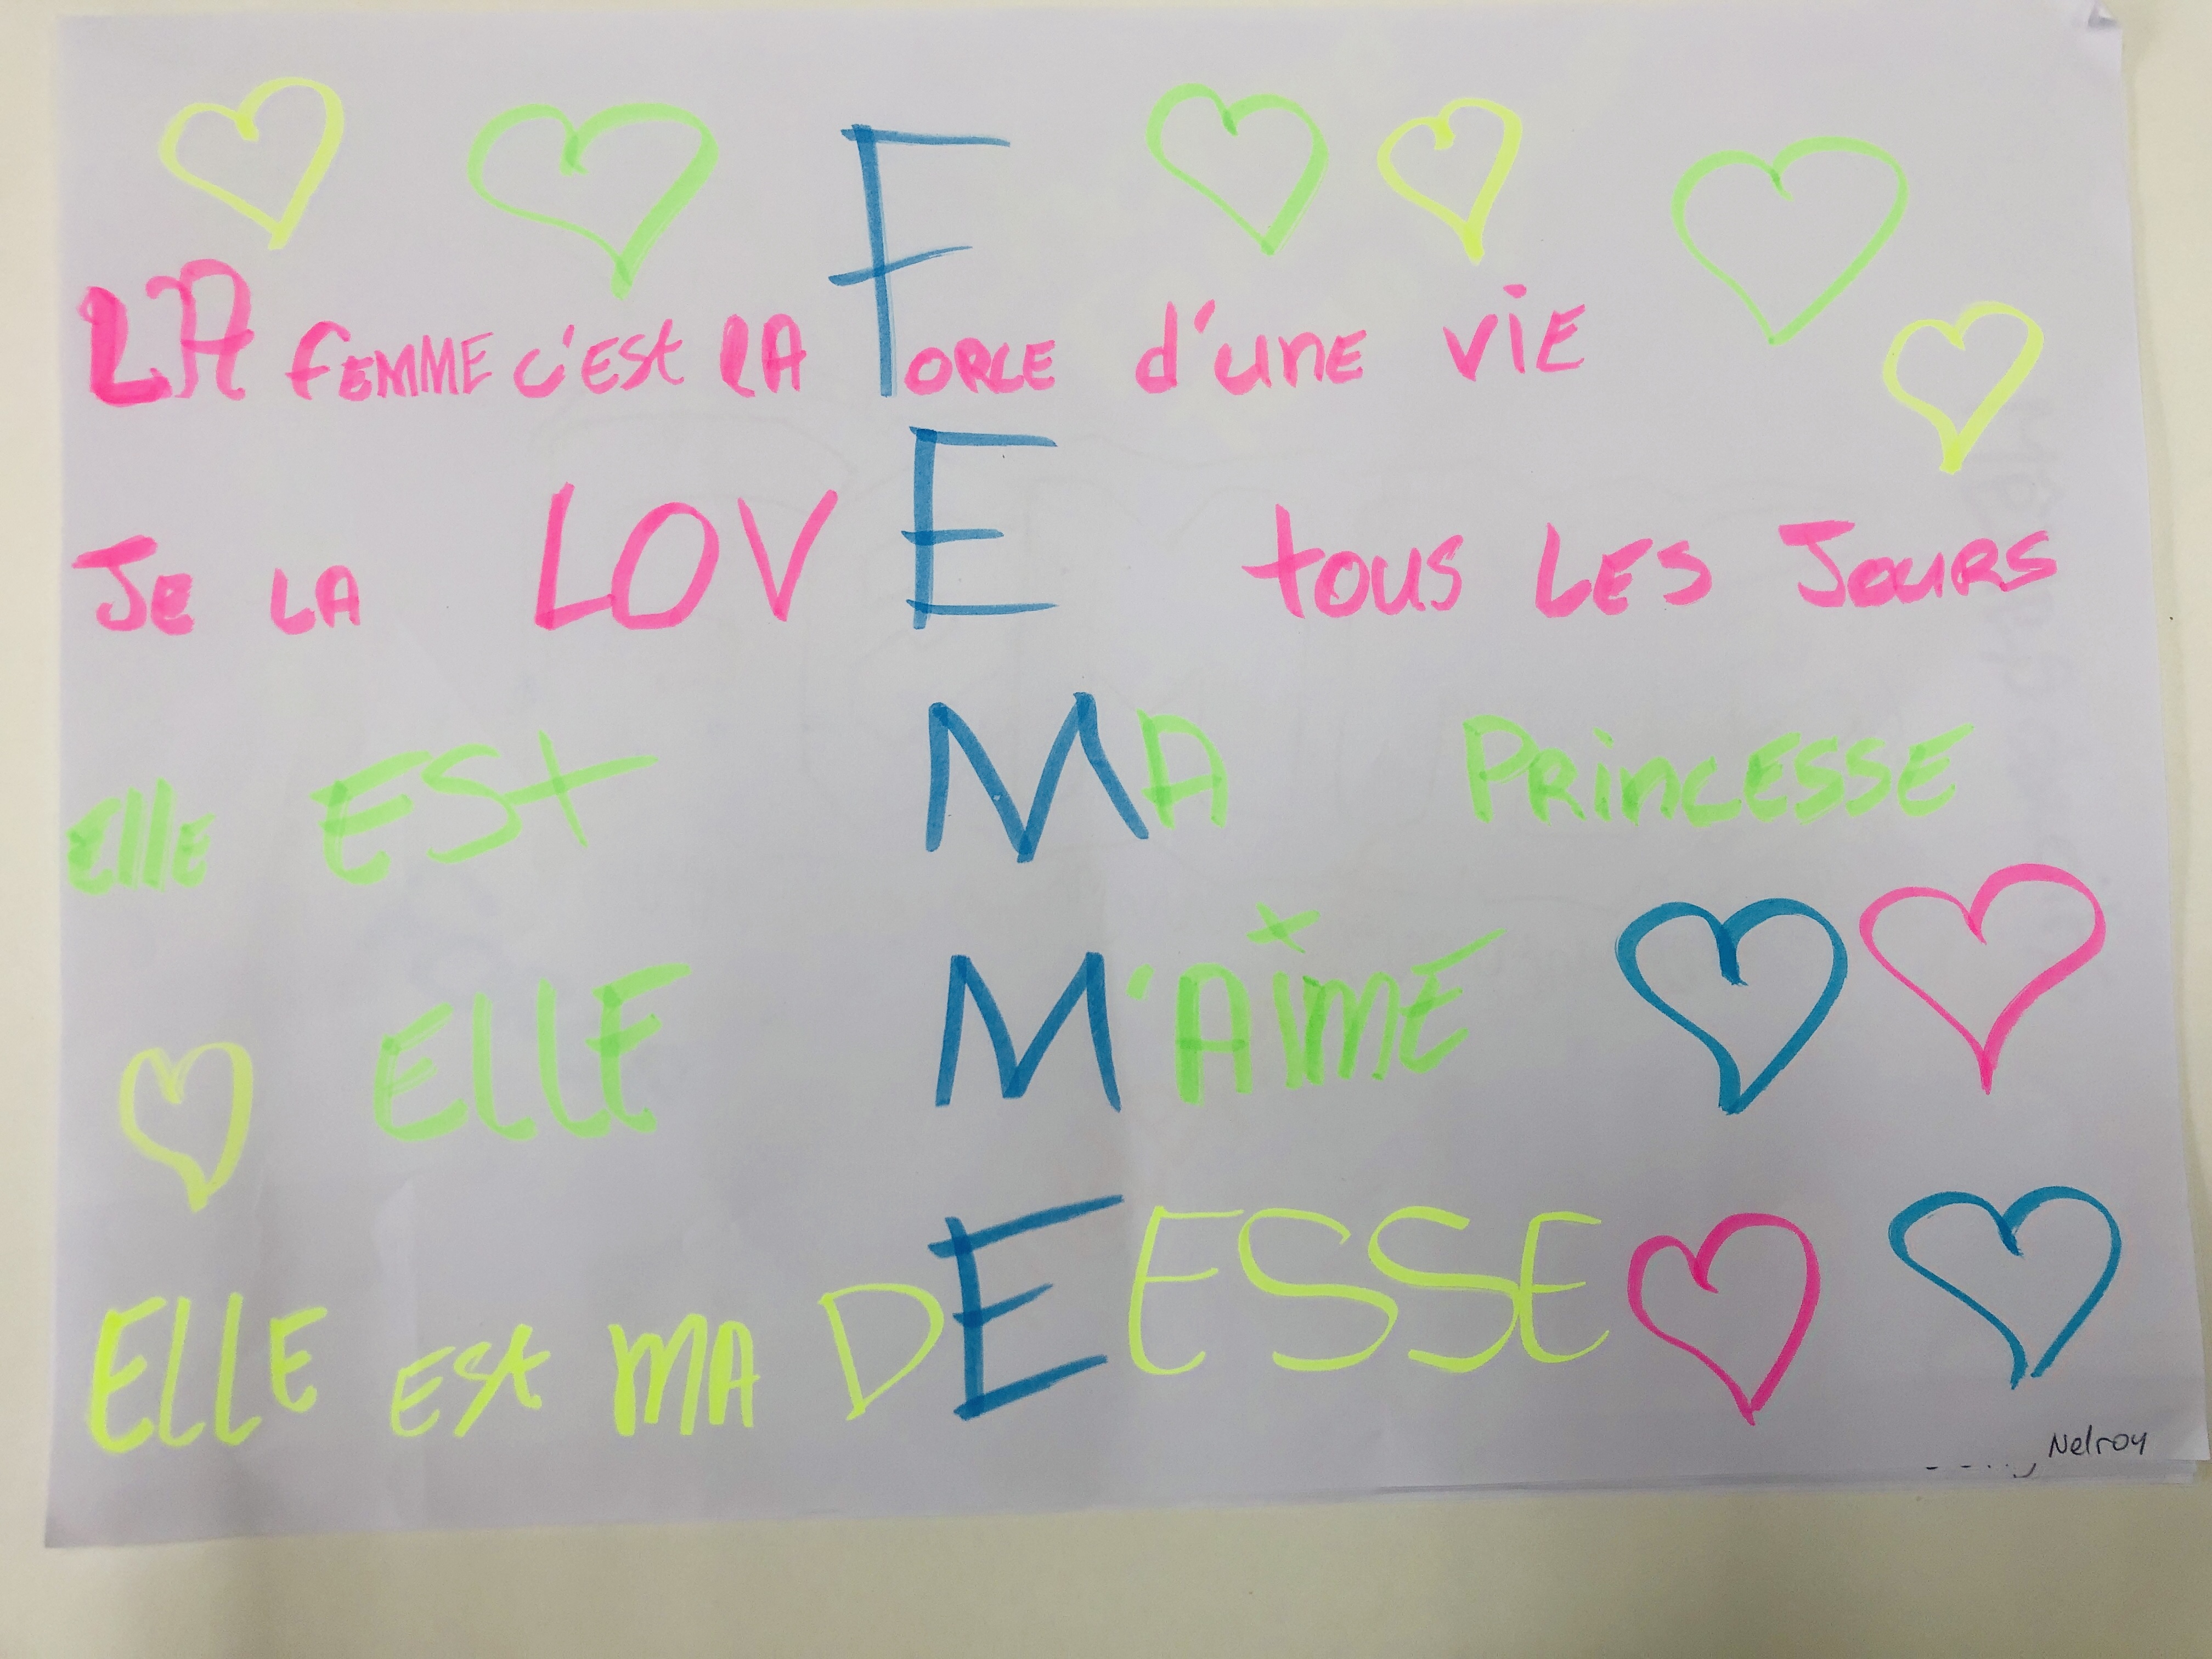 LA femme c'est LA Force d'une vie
Je LA LOVE tous LES Jours
Elle EST MA PRINCESSE
ELLE M'AIME
ELLE EST MA DEESSE
Nelroy